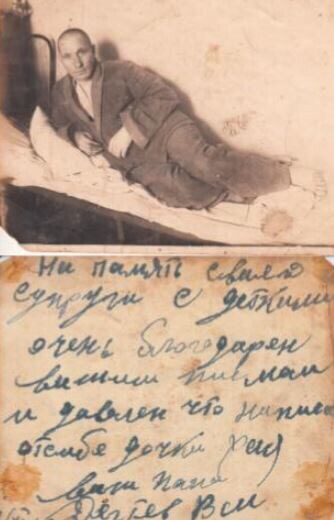 На память своей
супруги с детками
очень благодарен
вашим письмам
и давлен что написа
отсебе дочки Рая
ваш папа
Дегтев В